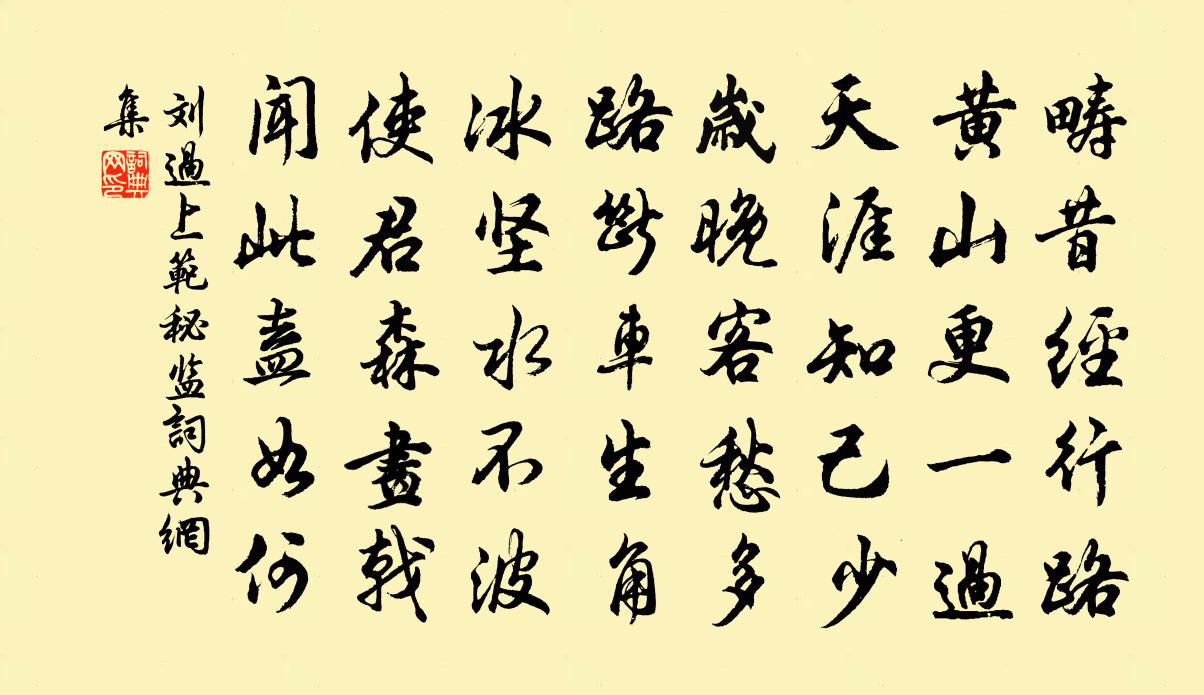 畴昔經行路
黄山更一過
天涯知己少
歲晚客愁多
路斷車生角
冰坚水不波
使君森畫戟
闻此盍如何
刘過上範秘监詞典網
集
詞典网印